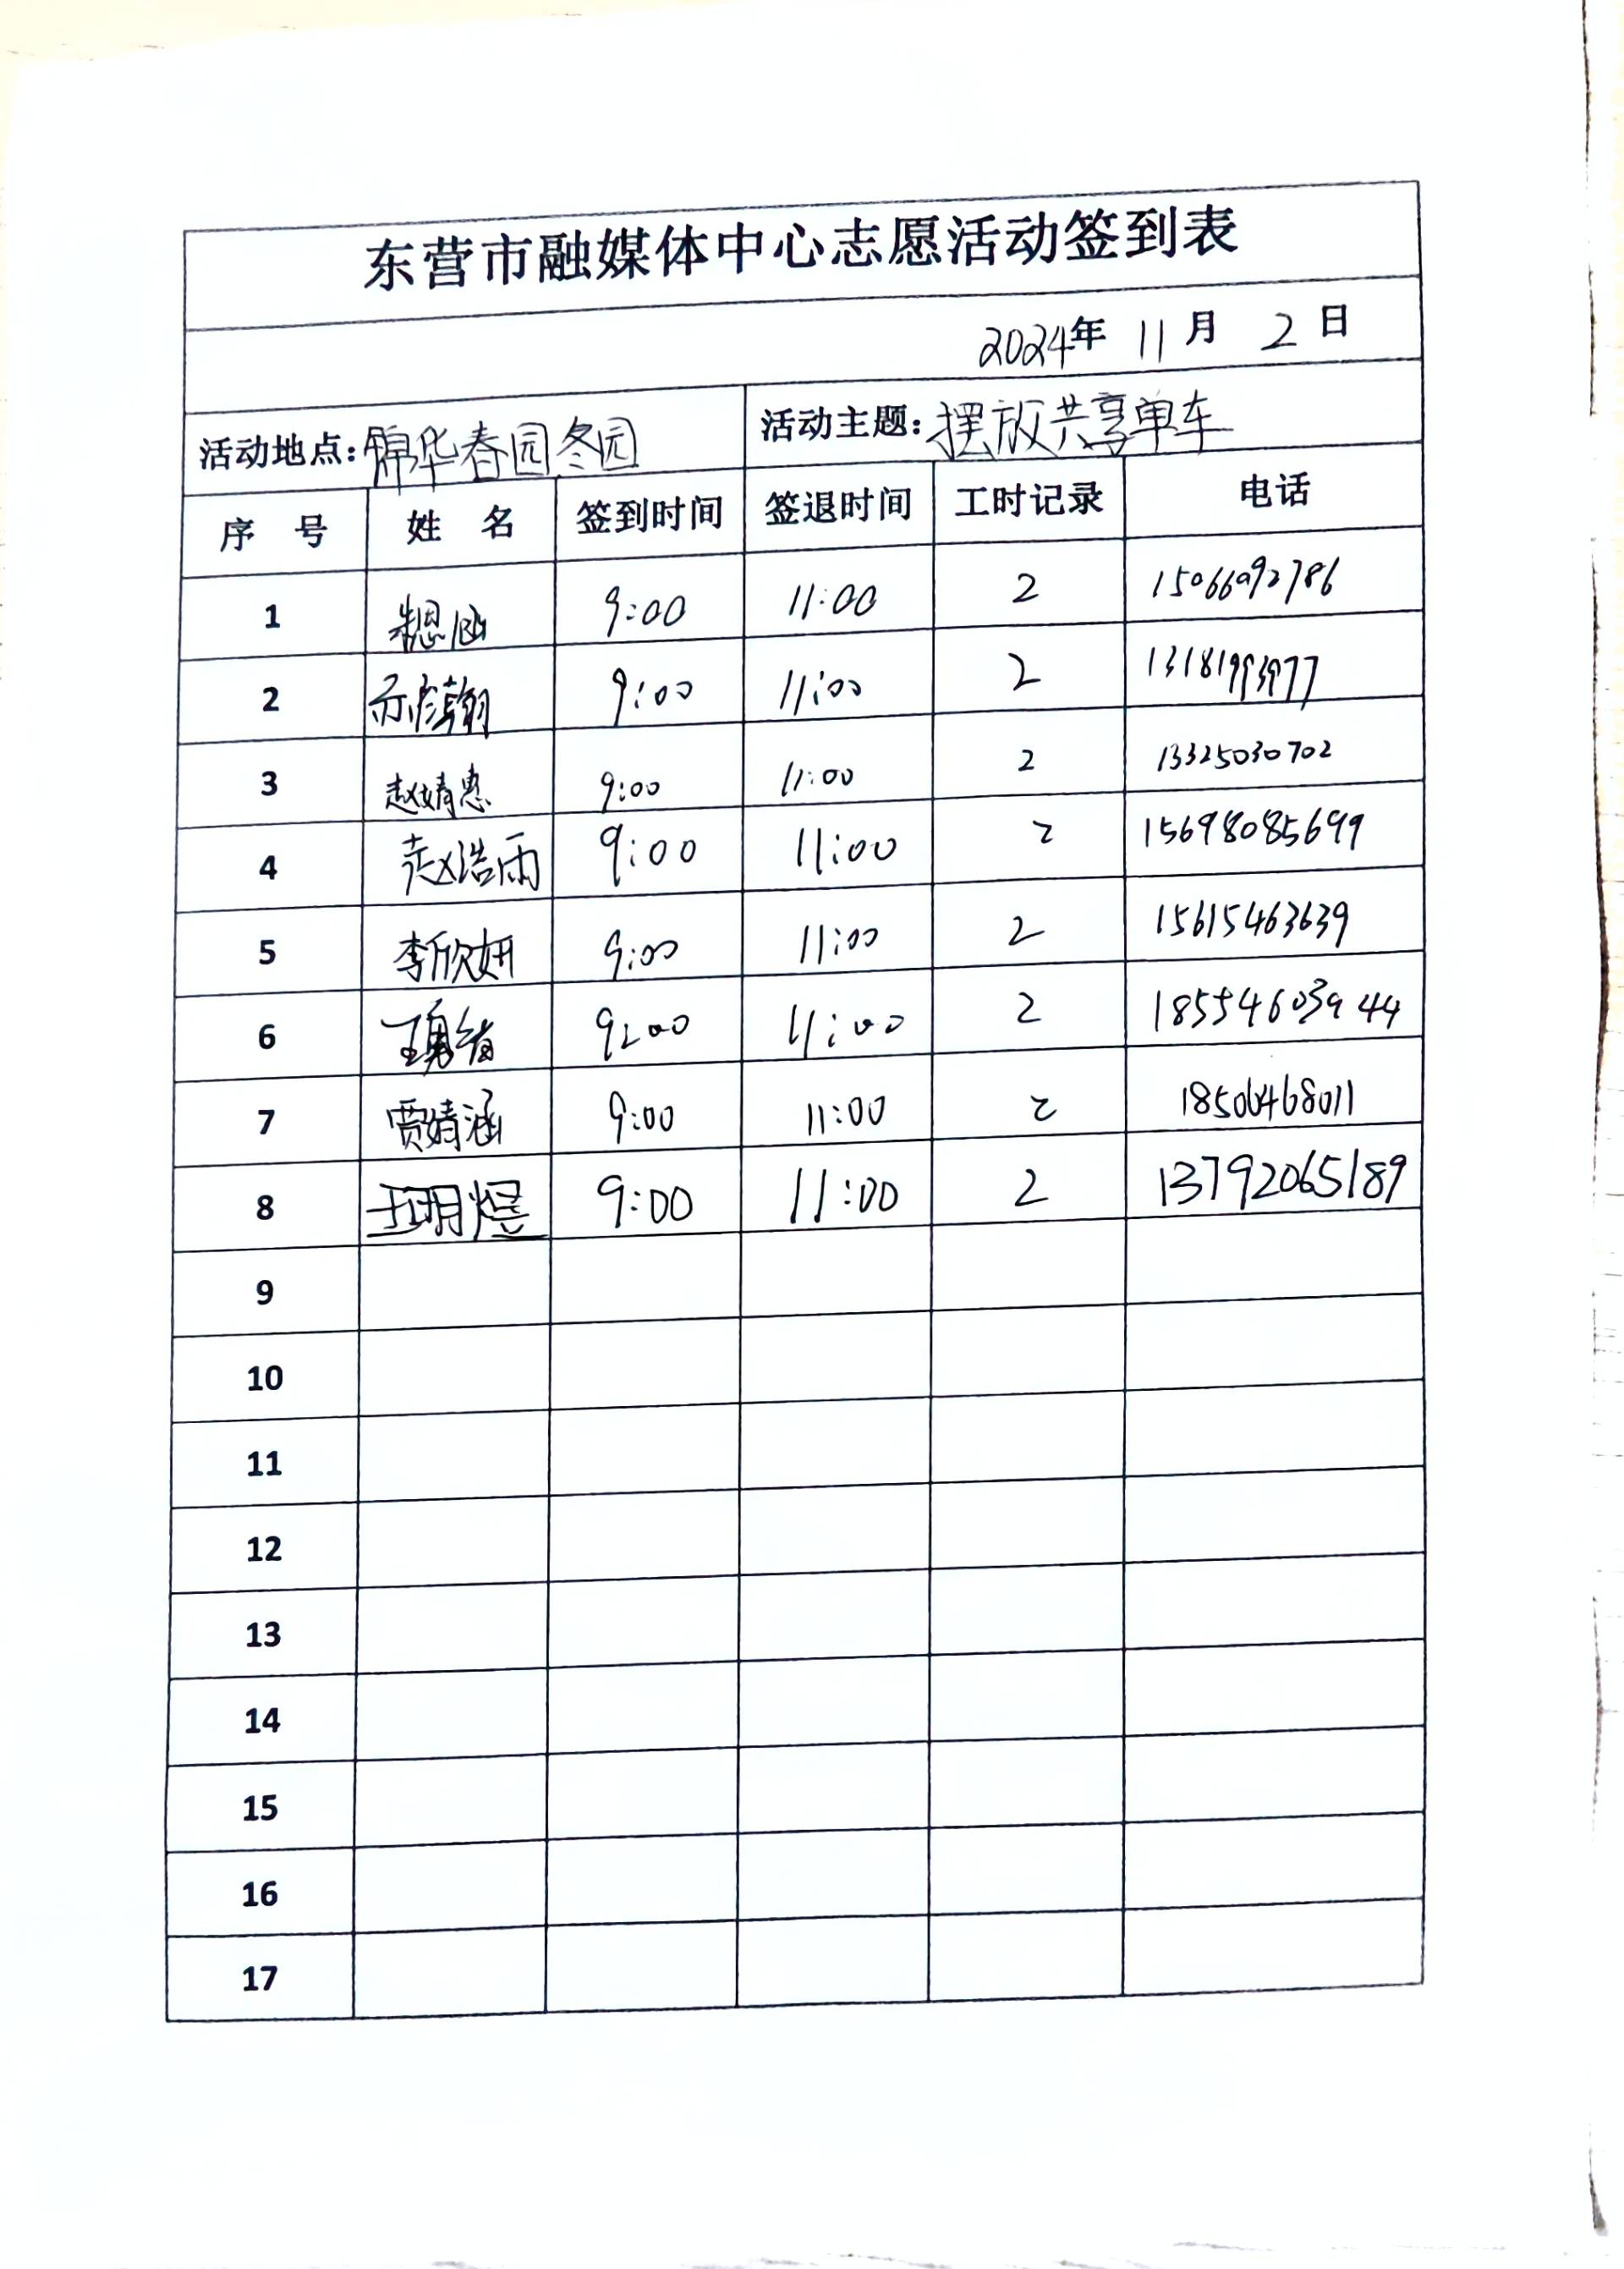 东营市融媒体中心志愿活动签到表
2024年 11月 2日
活动地点:锦华春园冬园 活动主题:摆放共享单车
序 号 姓 名 签到时间 签退时间 工时记录 电话
1 9:00 11:00 2 15066092786
2 9:00 11:00 2 13181993977
3 赵婧惠 9:00 11:00 2 13325030702
4 赵浩雨 9:00 11:00 2 15698085699
5 李欣妍 9:00 11:00 2 15615463639
6 9:00 11:00 2 18554603944
7 贾婧涵 9:00 11:00 2 18506468011
8 9:00 11:00 2 13792065189
9
10
11
12
13
14
15
16
17